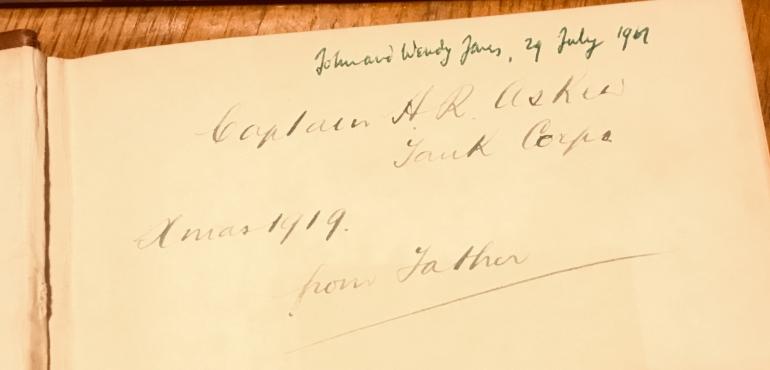 John and Wendy Jones, 29 July 19
Captain H. R. Askew
Tank Corps
Xmas 1919.
from Father